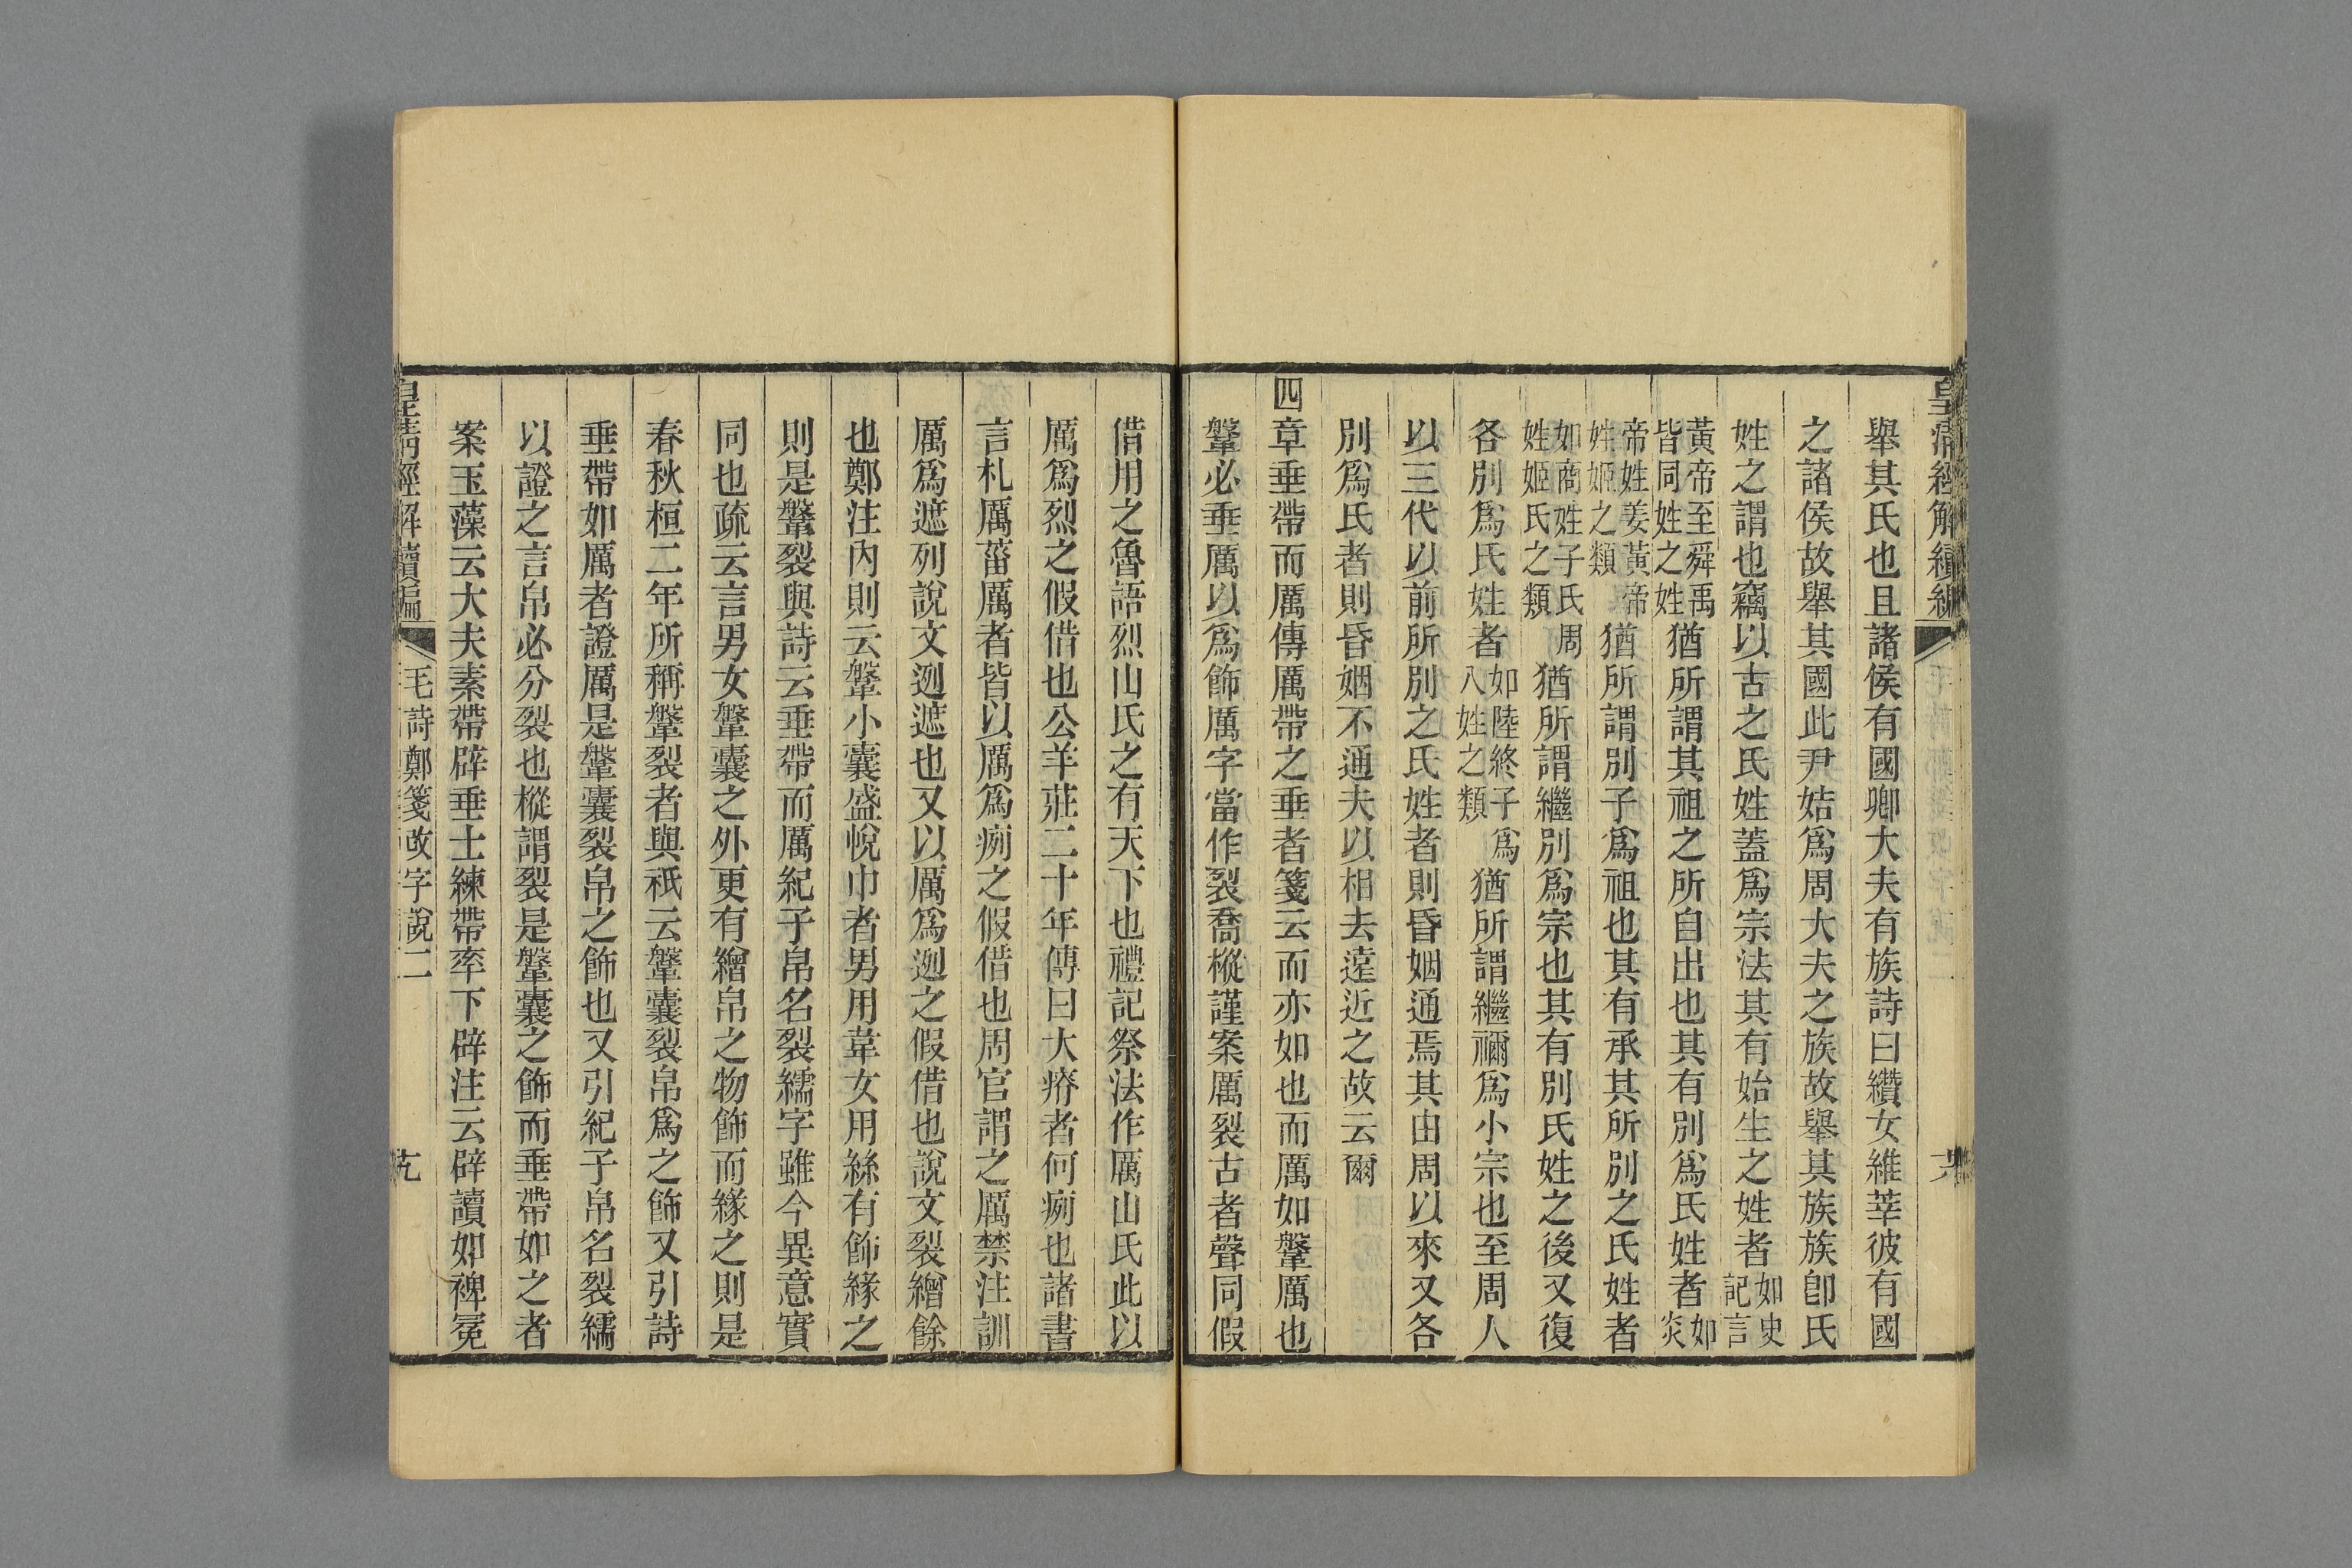 皇淸經解續編
舉其氏也且諸侯有國卿大夫有族詩曰纘女維莘彼有國
之諸侯故舉其國此尹姞爲周大夫之族故舉其族族卽氏
姓之謂也竊以古之氏姓蓋爲宗法其有始生之姓者如史記言
黃帝至舜禹皆同姓之姓猶所謂其祖之所自出也其有別爲氏姓者如炎
帝姓姜黃帝姓姬之類猶所謂別子爲祖也其有承其所別之氏姓者
如商姓子氏周姓姬氏之類猶所謂繼別爲宗也其有別氏姓之後又復
各別爲氏姓者如陸終子爲八姓之類猶所謂繼禰爲小宗也至周人
以三代以前所別之氏姓者則昏姻通焉其由周以來又各
別爲氏者則昏姻不通夫以相去遠近之故云爾
四章垂帶而厲傳厲帶之垂者箋云而亦如也而厲如鞶厲也
鞶必垂厲以爲飾厲字當作裂喬樅謹案厲裂古者聲同假
借用之魯語烈山氏之有天下也禮記祭法作厲山氏此以
厲爲烈之假借也公羊莊二十年傳曰大瘠者何痢也諸書
言札厲菑厲者皆以厲爲痢之假借也周官謂之厲禁注訓
厲爲遮列說文迾遮也又以厲爲迾之假借也說文裂繒餘
也鄭注內則云鞶小囊盛帨巾者男用韋女用絲有飾緣之
則是鞶裂與詩云垂帶而厲紀子帛名裂繻字雖今異意實
同也疏云言男女鞶囊之外更有繒帛之物飾而緣之則是
春秋桓二年所稱鞶裂者與祇云鞶囊裂帛爲之飾又引詩
垂帶如厲者證厲是鞶囊裂帛之飾也又引紀子帛名裂繻
以證之言帛必分裂也樅謂裂是鞶囊之飾而垂帶如之者
案玉藻云大夫素帶辟垂士練帶率下辟注云辟讀如裨冕
皇淸經解續編
毛詩鄭箋改字說二